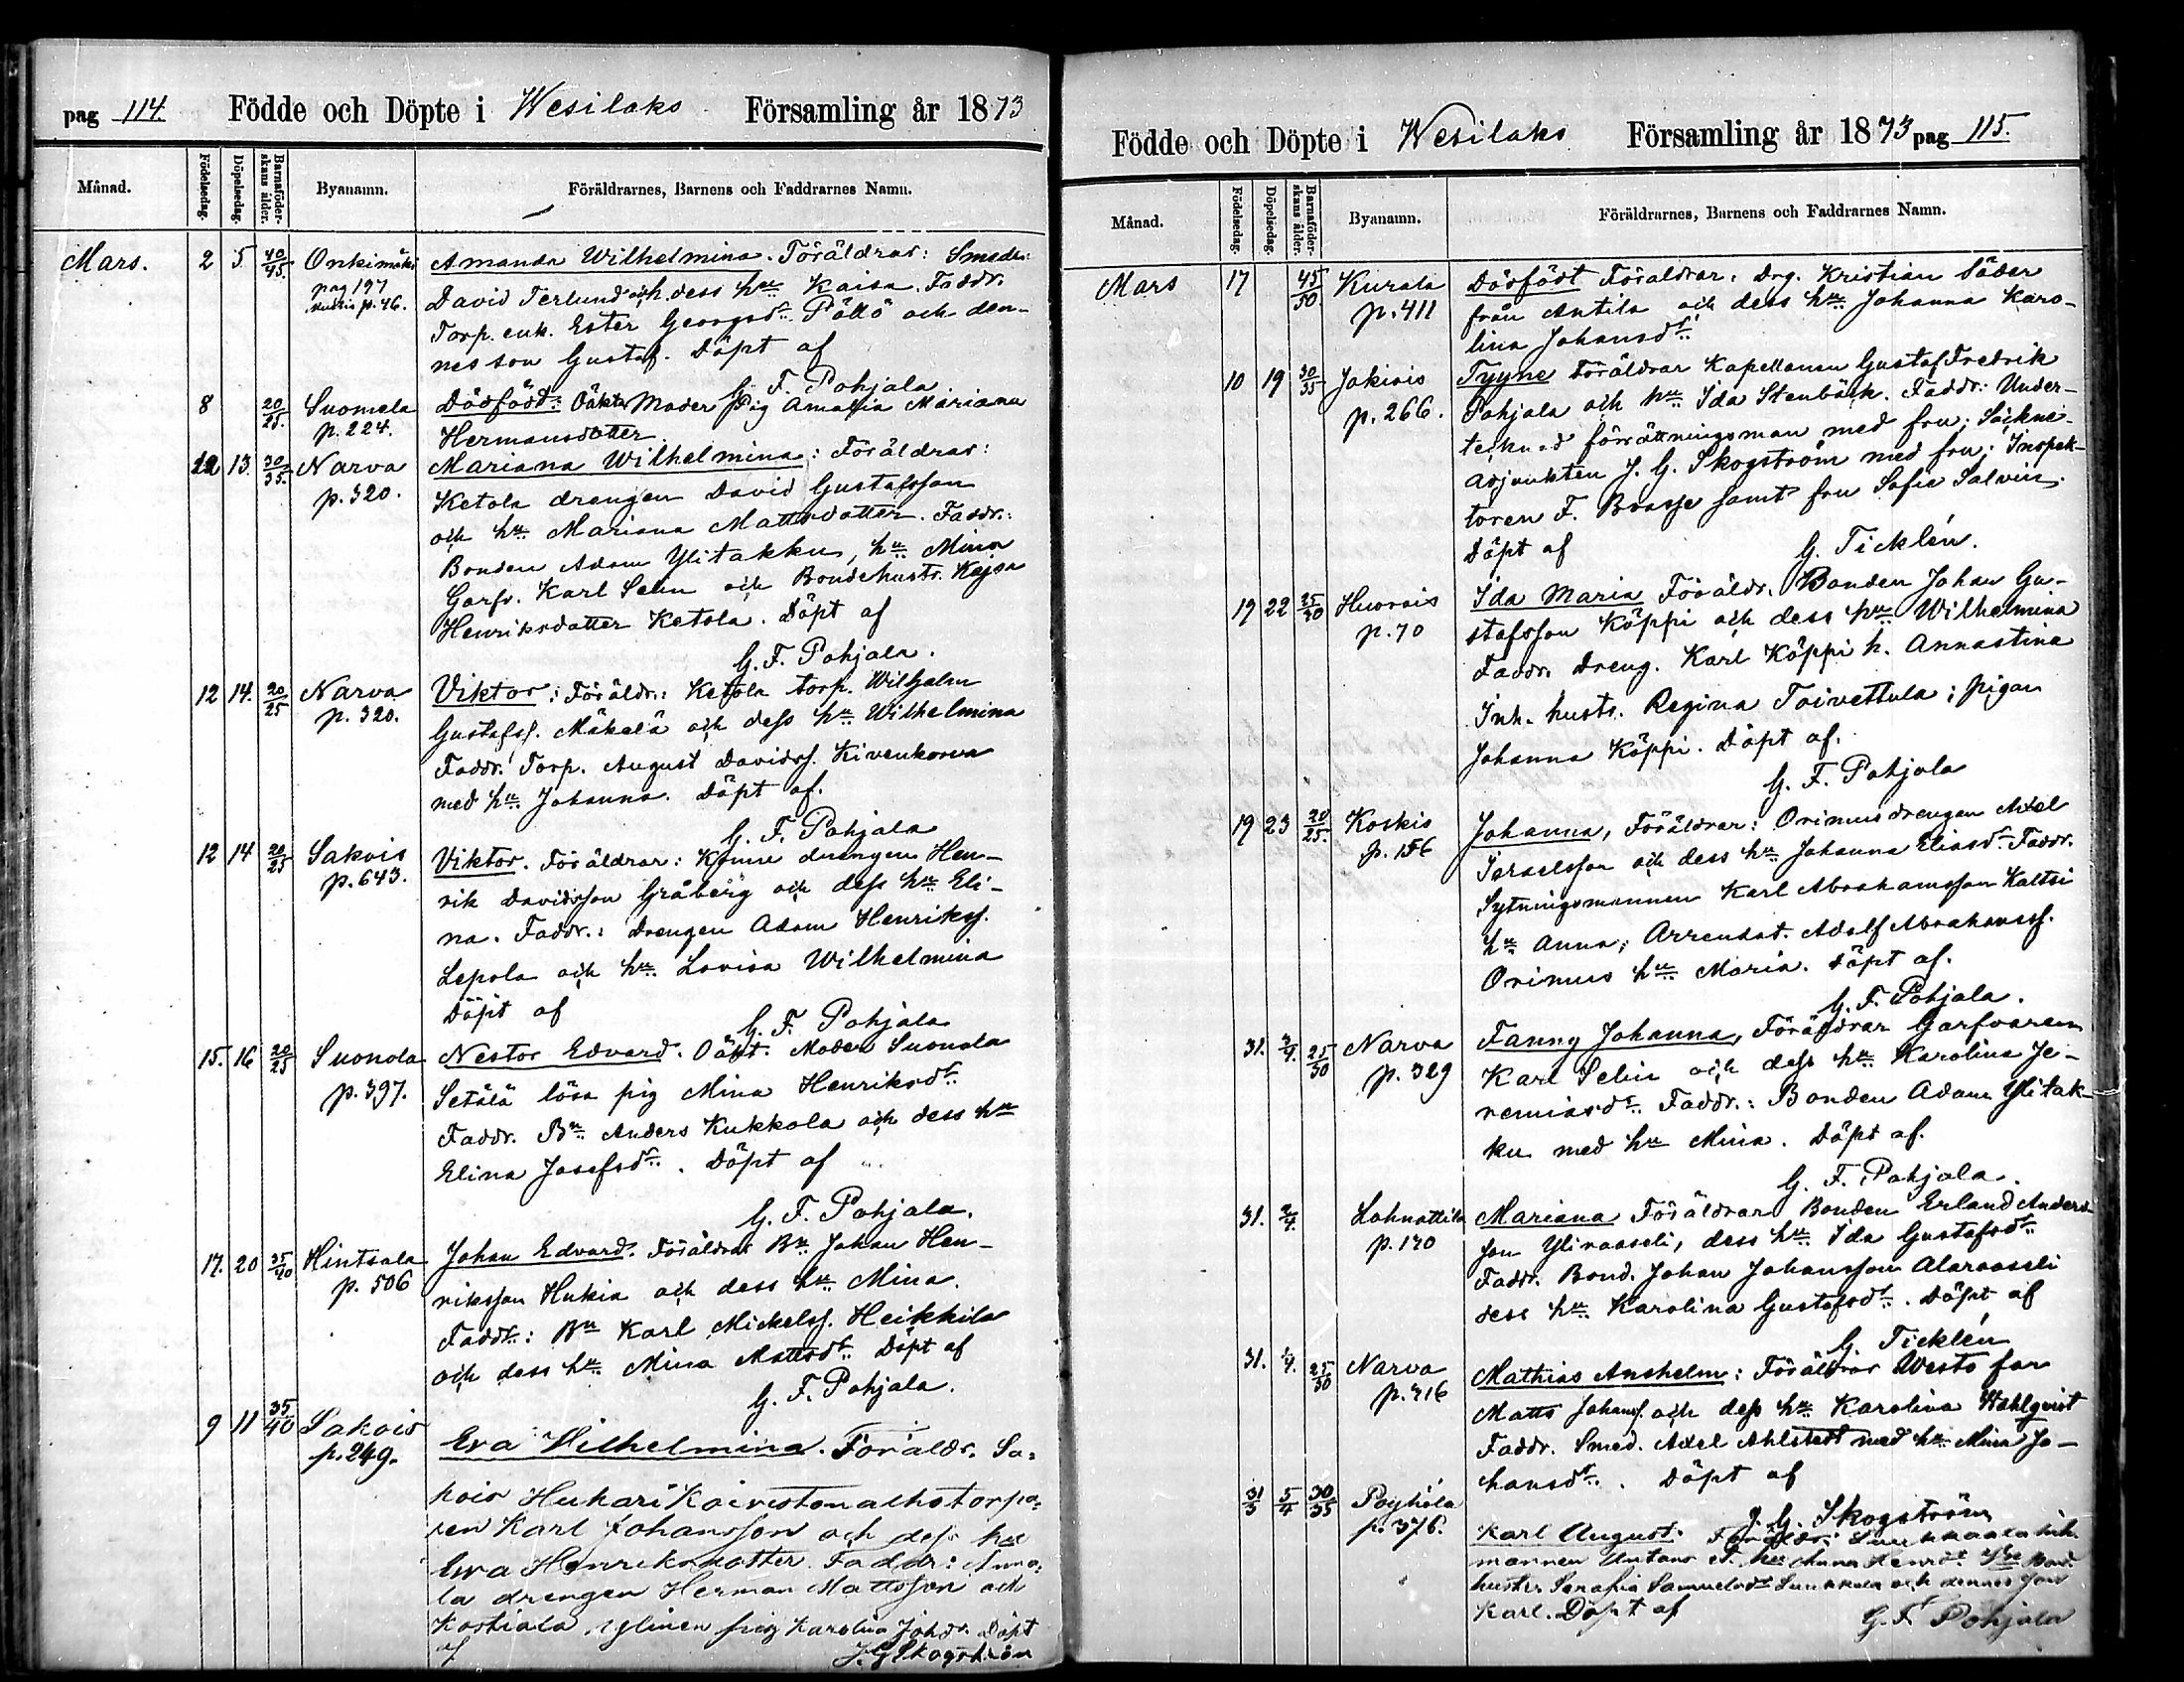 pag 114. Födde och Döpte i Wesilaks Församling år 1873
Månad. Födelsedag. Döpelsedag. Barnaföderskans ålder. Byanamn. Föräldrarnes, Barnens och Faddrarnes Namn.
Mars. 2 5 40/45. Onkimäki Amanda Wilhelmina. Föräldrar: Smeden
pag 197 David Terlund och dess hu Kaisa. Faddr.
p. 46. Torp. enk. Ester Georgsdr Pöllö och den-
nes son Gustaf. Döpt af
G. F. Pohjala.
8 20/25. Suomela Dödfödt: Oäkta Moder Pig Amalia Mariana
p. 224. Hermansdotter.
12 13. 30/35. Narva Mariana Wilhelmina: Föräldrar:
p. 320. Ketola drengen David Gustafsson
och hu Mariana Mattsdotter. Faddr.:
Bonden Adam Ylitakku, hu Mina
Garfv. Karl Selin och Bondehustr. Kajsa
Henriksdotter Ketola. Döpt af
G. F. Pohjala.
12 14. 20/25 Narva Viktor: Föräldr.: Ketola torp. Wilhelm
p. 320. Gustafss. Mäkelä och dess hu Wilhelmina
Faddr. Torp. August Davidss. Kivenkorva
med hu Johanna. Döpt af.
G. F. Pohjala
12 14 20/25 Sakois Viktor. Föräldrar: drengen Hen-
p. 643. rik Davidsson Gråberg och dess hu Eli-
na. Faddr.: Drengen Adam Henrikss.
Lepola och hu Lovisa Wilhelmina
Döpt af
G. F. Pohjala
15. 16 20/25 Suonola Nestor Edvard. Oäkt. Moder Suonola
p. 397. Setälä lösa pig Mina Henriksdr
Faddr. Bn Anders Kukkola och dess hu
Elina Josefsdr. Döpt af
G. F. Pohjala.
17. 20 35/40 Hintsala Johan Edvard. Föräldrar Bn Johan Hen-
p. 506 riksson Hukia och dess hu Mina.
Faddr: Bn Karl Mickelss. Heikkilä
och dess hu Mina Mattsdr. Döpt af
G. F. Pohjala.
9 11 35/40 Sakois Eva Wilhelmina. Föräldr. Sa-
p. 249. kois Hukari Koiviston alhstorpa-
ren Karl Johansson och dess hu
Eva Henriksdotter. Faddr: Anna-
la drengen Herman Mattsson och
Kostiala Ylinen pig Karolina Johdr. Döpt
af J. G. Skogström
Födde och Döpte i Wesilaks Församling år 1873 pag 115.
Månad. Födelsedag. Döpelsedag. Barnaföderskans ålder. Byanamn. Föräldrarnes, Barnens och Faddrarnes Namn.
Mars 17 45/50 Kurala Dödfödt Föräldrar: Drg. Kristian Söder
p. 411 från Antila och dess hu Johanna Karo-
lina Johansdr
10 19 30/35 Jokiois Tyyne Föräldrar Kapellanen Gustaf Fredrik
p. 266. Pohjala och hu Ida Stenbäck. Faddr: Under-
tecknad förrättningsman med fru; Sockne-
adjunkten J. G. Skogström med fru; Inspek-
toren F. Brasse samt fru Sofie Salvin.
Döpt af G. Ticklén.
19 22 25/30 Huorois Ida Maria Föräldr. Bonden Johan Gu-
p. 70 stafsson Köppi och dess hu Wilhelmina
Faddr. Dreng. Karl Köppi h. Annastina
Inh. hustr. Regina Toivettula; pigan
Johanna Köppi. Döpt af.
G. F. Pohjola
19 23 20/25. Koskis Johanna, Föräldrar: Orimusdrengen Axel
p. 156 Israelsson och dess hu Johanna Eliasdr. Faddr.
Sytningsmannen Karl Abrahamsson Kaltsi
hu Anna; Arrendat. Adolf Abrahamss.
Orimus hu Maria. Döpt af.
G. F. Pohjala.
31. 3/4. 25/30 Narva Fanny Johanna, Föräldrar Garfvaren
p. 329 Karl Selin och dess hu Karolina Je-
remiasdr. Faddr.: Bonden Adam Ylitak-
ku med hu Mina. Döpt af.
G. F. Pohjala.
31. 2/4. Lahnottila Mariana Föräldrar Bonden Erland Anders-
p. 170 son Yliroaseli, dess hu Ida Gustafsdr
Faddr. Bond. Johan Johansson Alaroaseli
dess hu Karolina Gustafsdr. Döpt af
G. Ticklén
31. 1/4. 25/30 Narva Mathias Anshelm: Föräldrar Westo far
p. 316 Matts Johanss. och dess hu Karolina Wahlqvist
Faddr. Smed. Axel Ahlstedt med hu Mina Jo-
hansdr. Döpt af
J. G. Skogström
31/3 5/4 30/35 Pöyhölä Karl August. Föräldr:
p. 376. mannen Antons hu Anna Henrdr
huster Serafia Samuelsdr och dennes son
Karl. Döpt af G. F. Pohjala